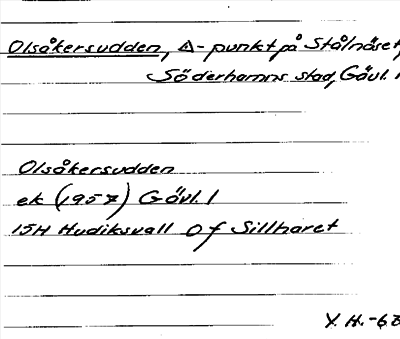 Olsåkersudden, Δ-punkt på Stålnäset,
Söderhamns stad, Gävl. l
Olsåkersudden
ek (1957) Gävl. l
15H Hudiksvall 0f Sillharet
Y. H. -68